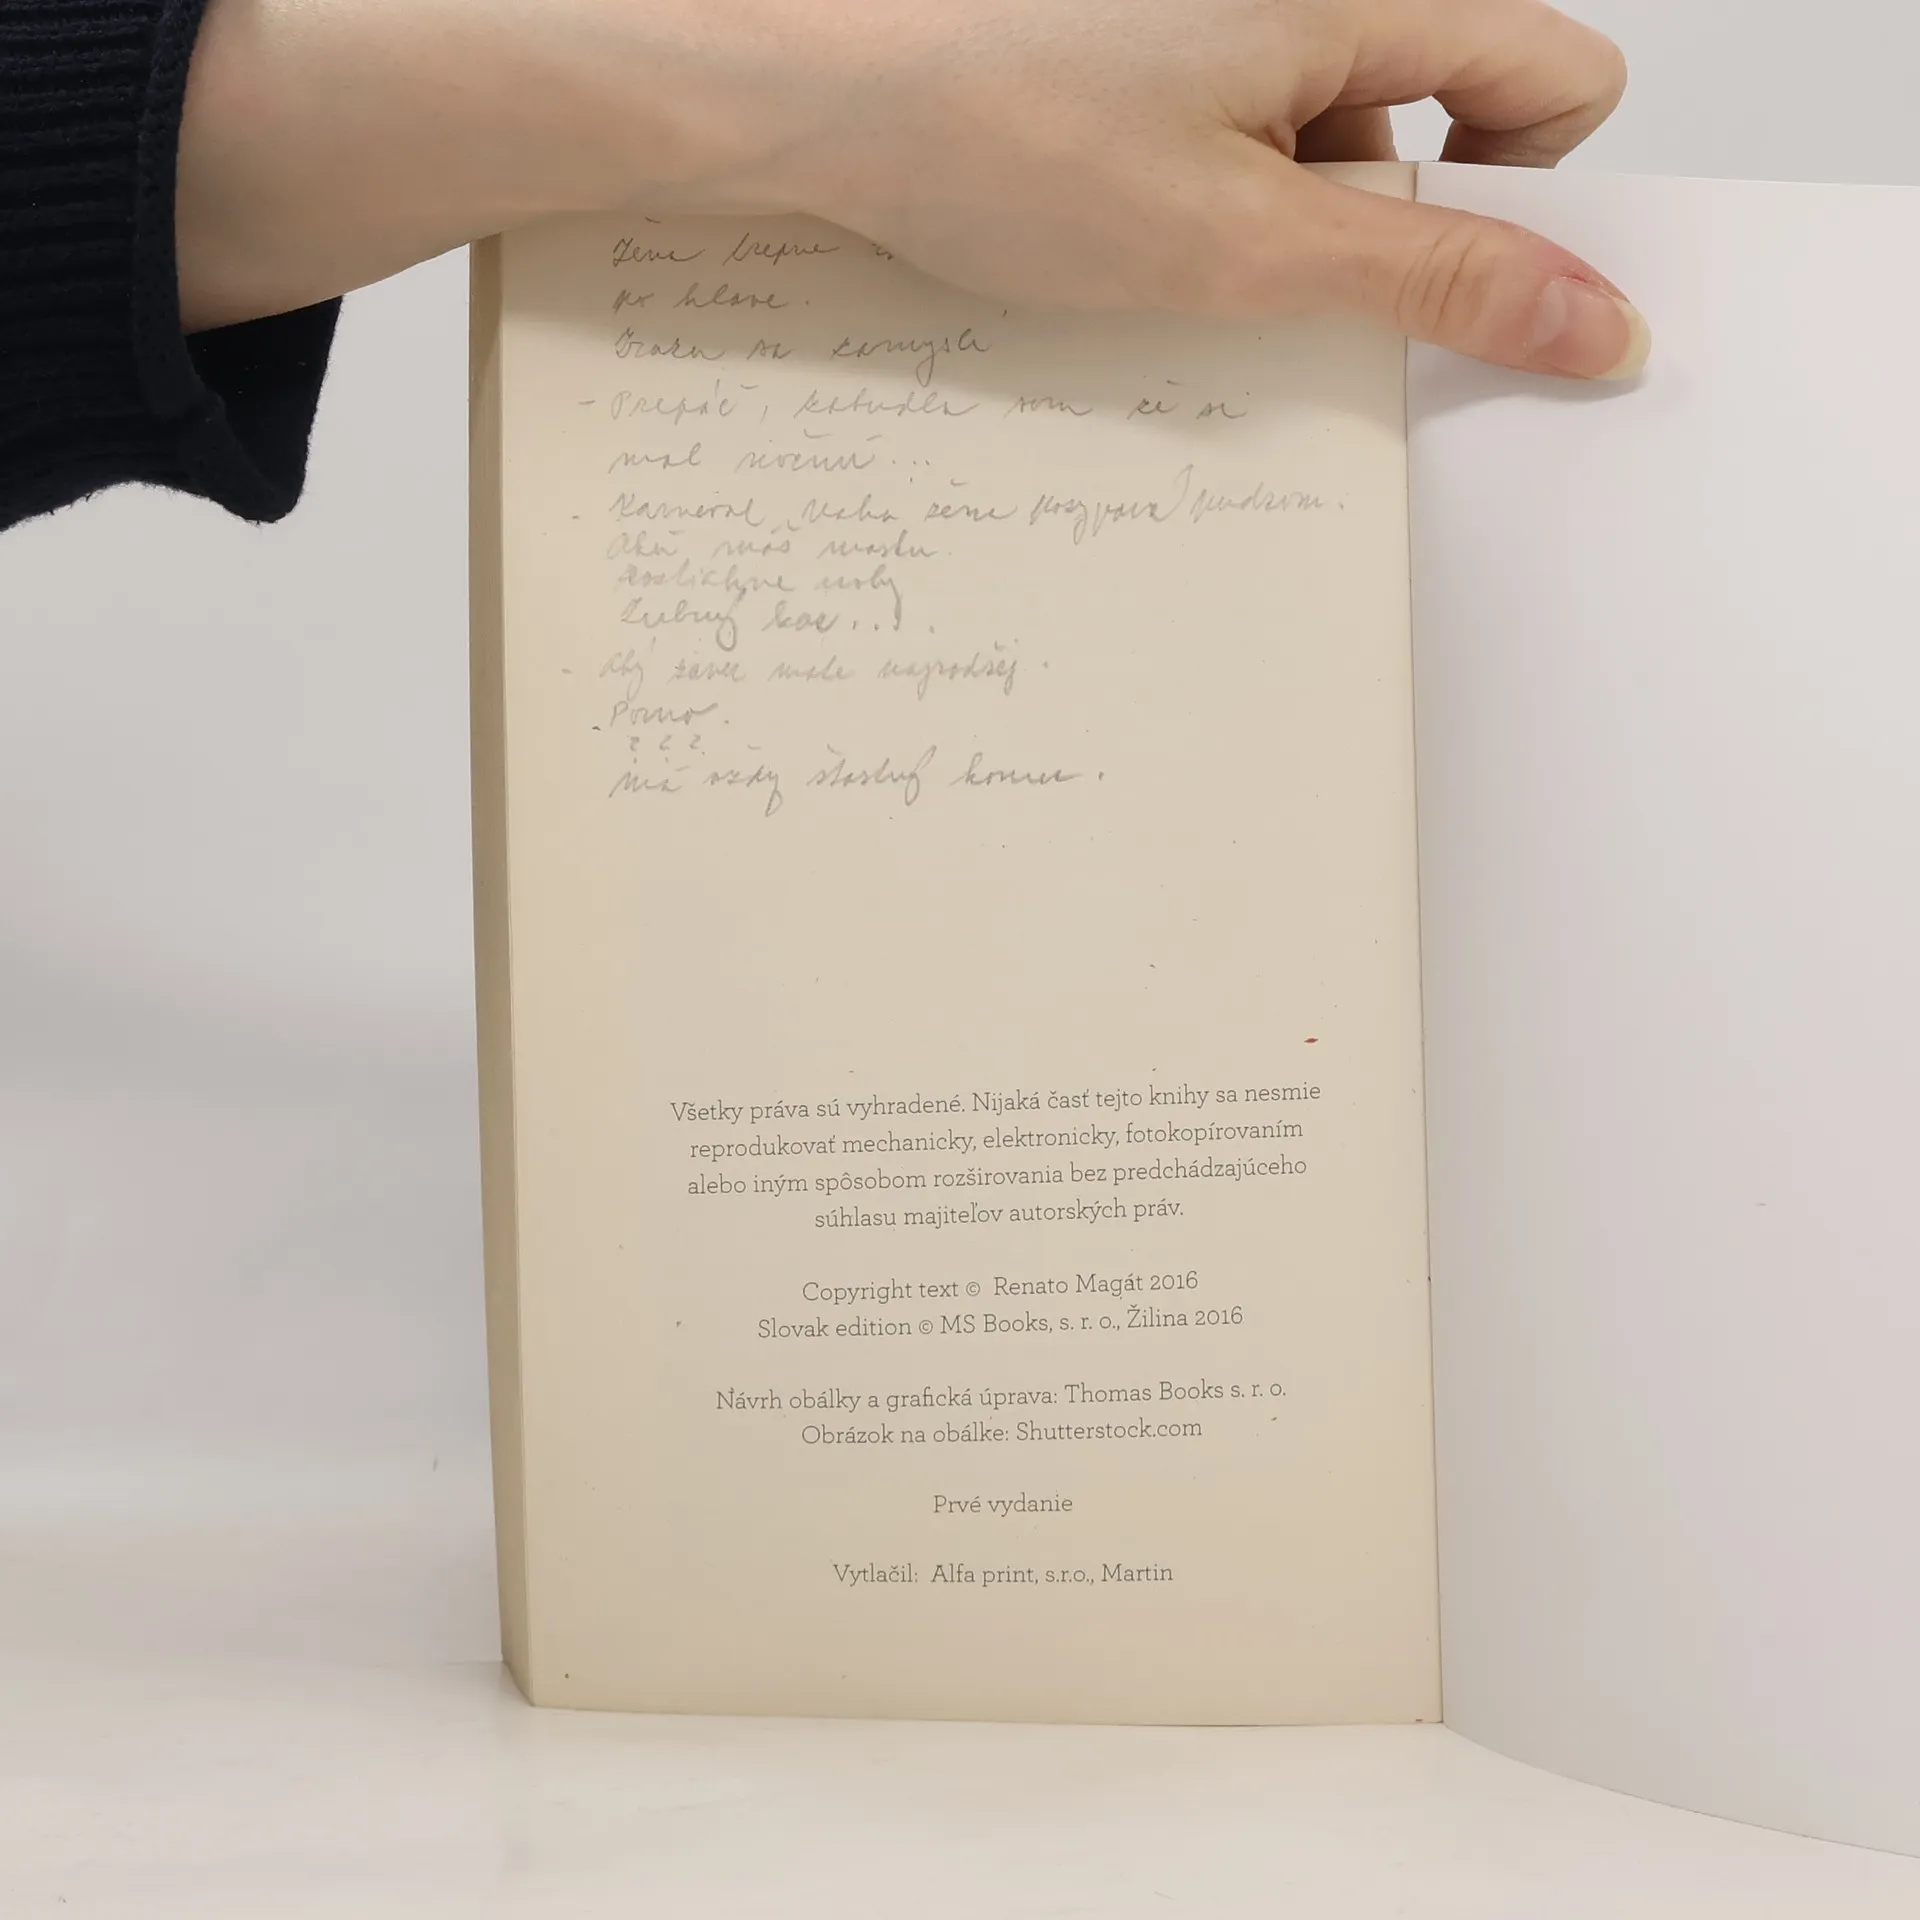 Žena trepne
po hlave.
Zrazu sa zamyslí
- Prepáč, zabudla som že si
mal nočnú...
- Kamarát, Vaša žena posypava pudrom.
máš
nohy
Zubný kaz...
-
- Porno.
???
Má vždy šťastný koniec.
Všetky práva sú vyhradené. Nijaká časť tejto knihy sa nesmie
reprodukovať mechanicky, elektronicky, fotokopírovaním
alebo iným spôsobom rozširovania bez predchádzajúceho
súhlasu majiteľov autorských práv.
Copyright text © Renato Magát 2016
Slovak edition © MS Books, s. r. o., Žilina 2016
Návrh obálky a grafická úprava: Thomas Books s. r. o.
Obrázok na obálke: Shutterstock.com
Prvé vydanie
Vytlačil: Alfa print, s.r.o., Martin